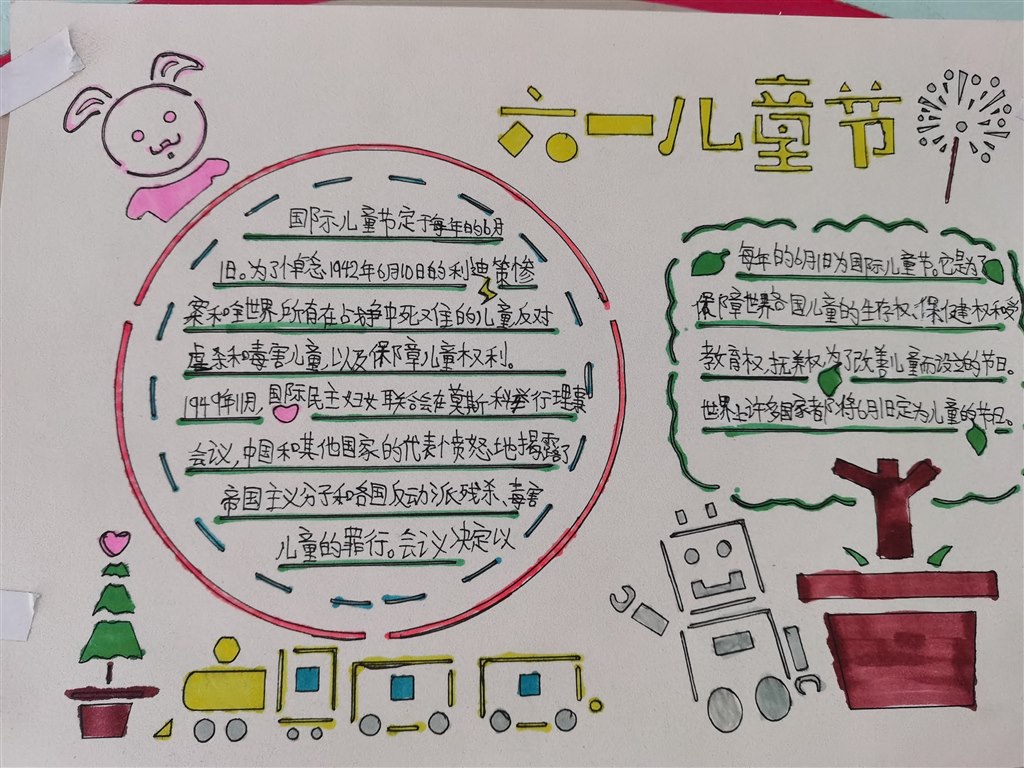 六一儿童节
国际儿童节定于每年的6月
1日。为了悼念1942年6月10日的利迪策惨
案和全世界所有在占战争中死难的儿童,反对
虐杀和毒害儿童,以及保障儿童权利。
1949年11月,国际民主妇女联合会在莫斯科举行理事
会议,中国和其他国家的代表愤怒地揭露了
帝国主义分子和各国反动派残杀、毒害
儿童的罪行。会议决定以
每年的6月1日为国际儿童节。它是为了
保障世界各国儿童的生存权、保健权和受
教育权,抚养权,为了改善儿童而设立的节日。
世界上许多国家都将6月1日定为儿童的节日。